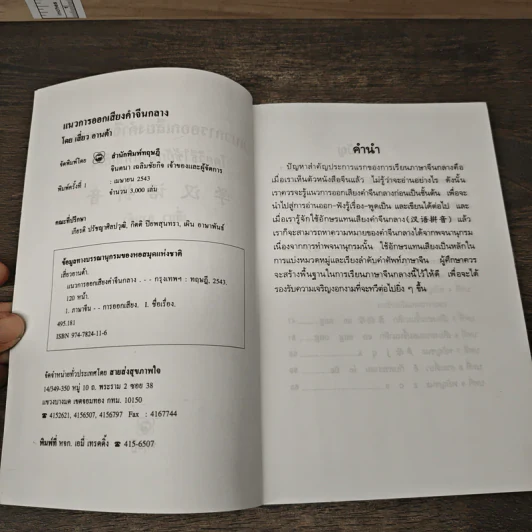 แนวการออกเสียงคำจีนกลาง
โดย เสี่ยว อานต้า
จัดพิมพ์โดย : สำนักพิมพ์ทฤษฎี
จินตนา เฉลิมชัยกิจ เจ้าของและผู้จัดการ
พิมพ์ครั้งที่ 1 : เมษายน 2543
จำนวน 3,000 เล่ม
คณะที่ปรึกษา
เกียรติ ปรัชญาศิลปวุฒิ, กิตติ ปัถพสุนทรา, เผิน อานาพันธ์
ข้อมูลทางบรรณานุกรมของหอสมุดแห่งชาติ
เสี่ยวอานต้า.
แนวการออกเสียงคำจีนกลาง . - - กรุงเทพฯ : ทฤษฎี, 2543.
120 หน้า.
1. ภาษาจีน - - การออกเสียง. I. ชื่อเรื่อง.
495.181
ISBN 974-7824-11-6
จัดจำหน่ายทั่วประเทศโดย สายส่งสุขภาพใจ
14/349-350 หมู่ 10 ถ. พระราม 2 ซอย 38
แขวงบางมด เขตจอมทอง กทม. 10150
☎ 4152621, 4156507, 4156797 Fax : 4167744
พิมพ์ที่ หจก. เอมี่ เทรดดิ้ง ☎ 415-6507
คำนำ
ปัญหาสำคัญประการแรกของการเรียนภาษาจีนกลางคือ
เมื่อเราเห็นตัวหนังสือจีนแล้ว ไม่รู้ว่าจะอ่านอย่างไร ดังนั้น
เราควรจะรู้แนวการออกเสียงคำจีนกลางก่อนเป็นขั้นต้น เพื่อจะ
นำไปสู่การอ่านออก-ฟังรู้เรื่อง-พูดเป็น และเขียนได้ต่อไป และ
เมื่อเรารู้จักใช้อักษรแทนเสียงคำจีนกลาง(汉语拼音) แล้ว
เราก็จะสามารถหาความหมายของคำจีนกลางได้จากพจนานุกรม
เนื่องจากการทำพจนานุกรมนั้น ใช้อักษรแทนเสียงเป็นหลักใน
การแบ่งหมวดหมู่และเรียงลำดับคำศัพท์ภาษาจีน ผู้ศึกษาควร
จะสร้างพื้นฐานในการเรียนภาษาจีนกลางนี้ไว้ให้ดี เพื่อจะได้
รองรับความเจริญงอกงามที่จะทวีต่อไปยิ่ง ๆ ขึ้น